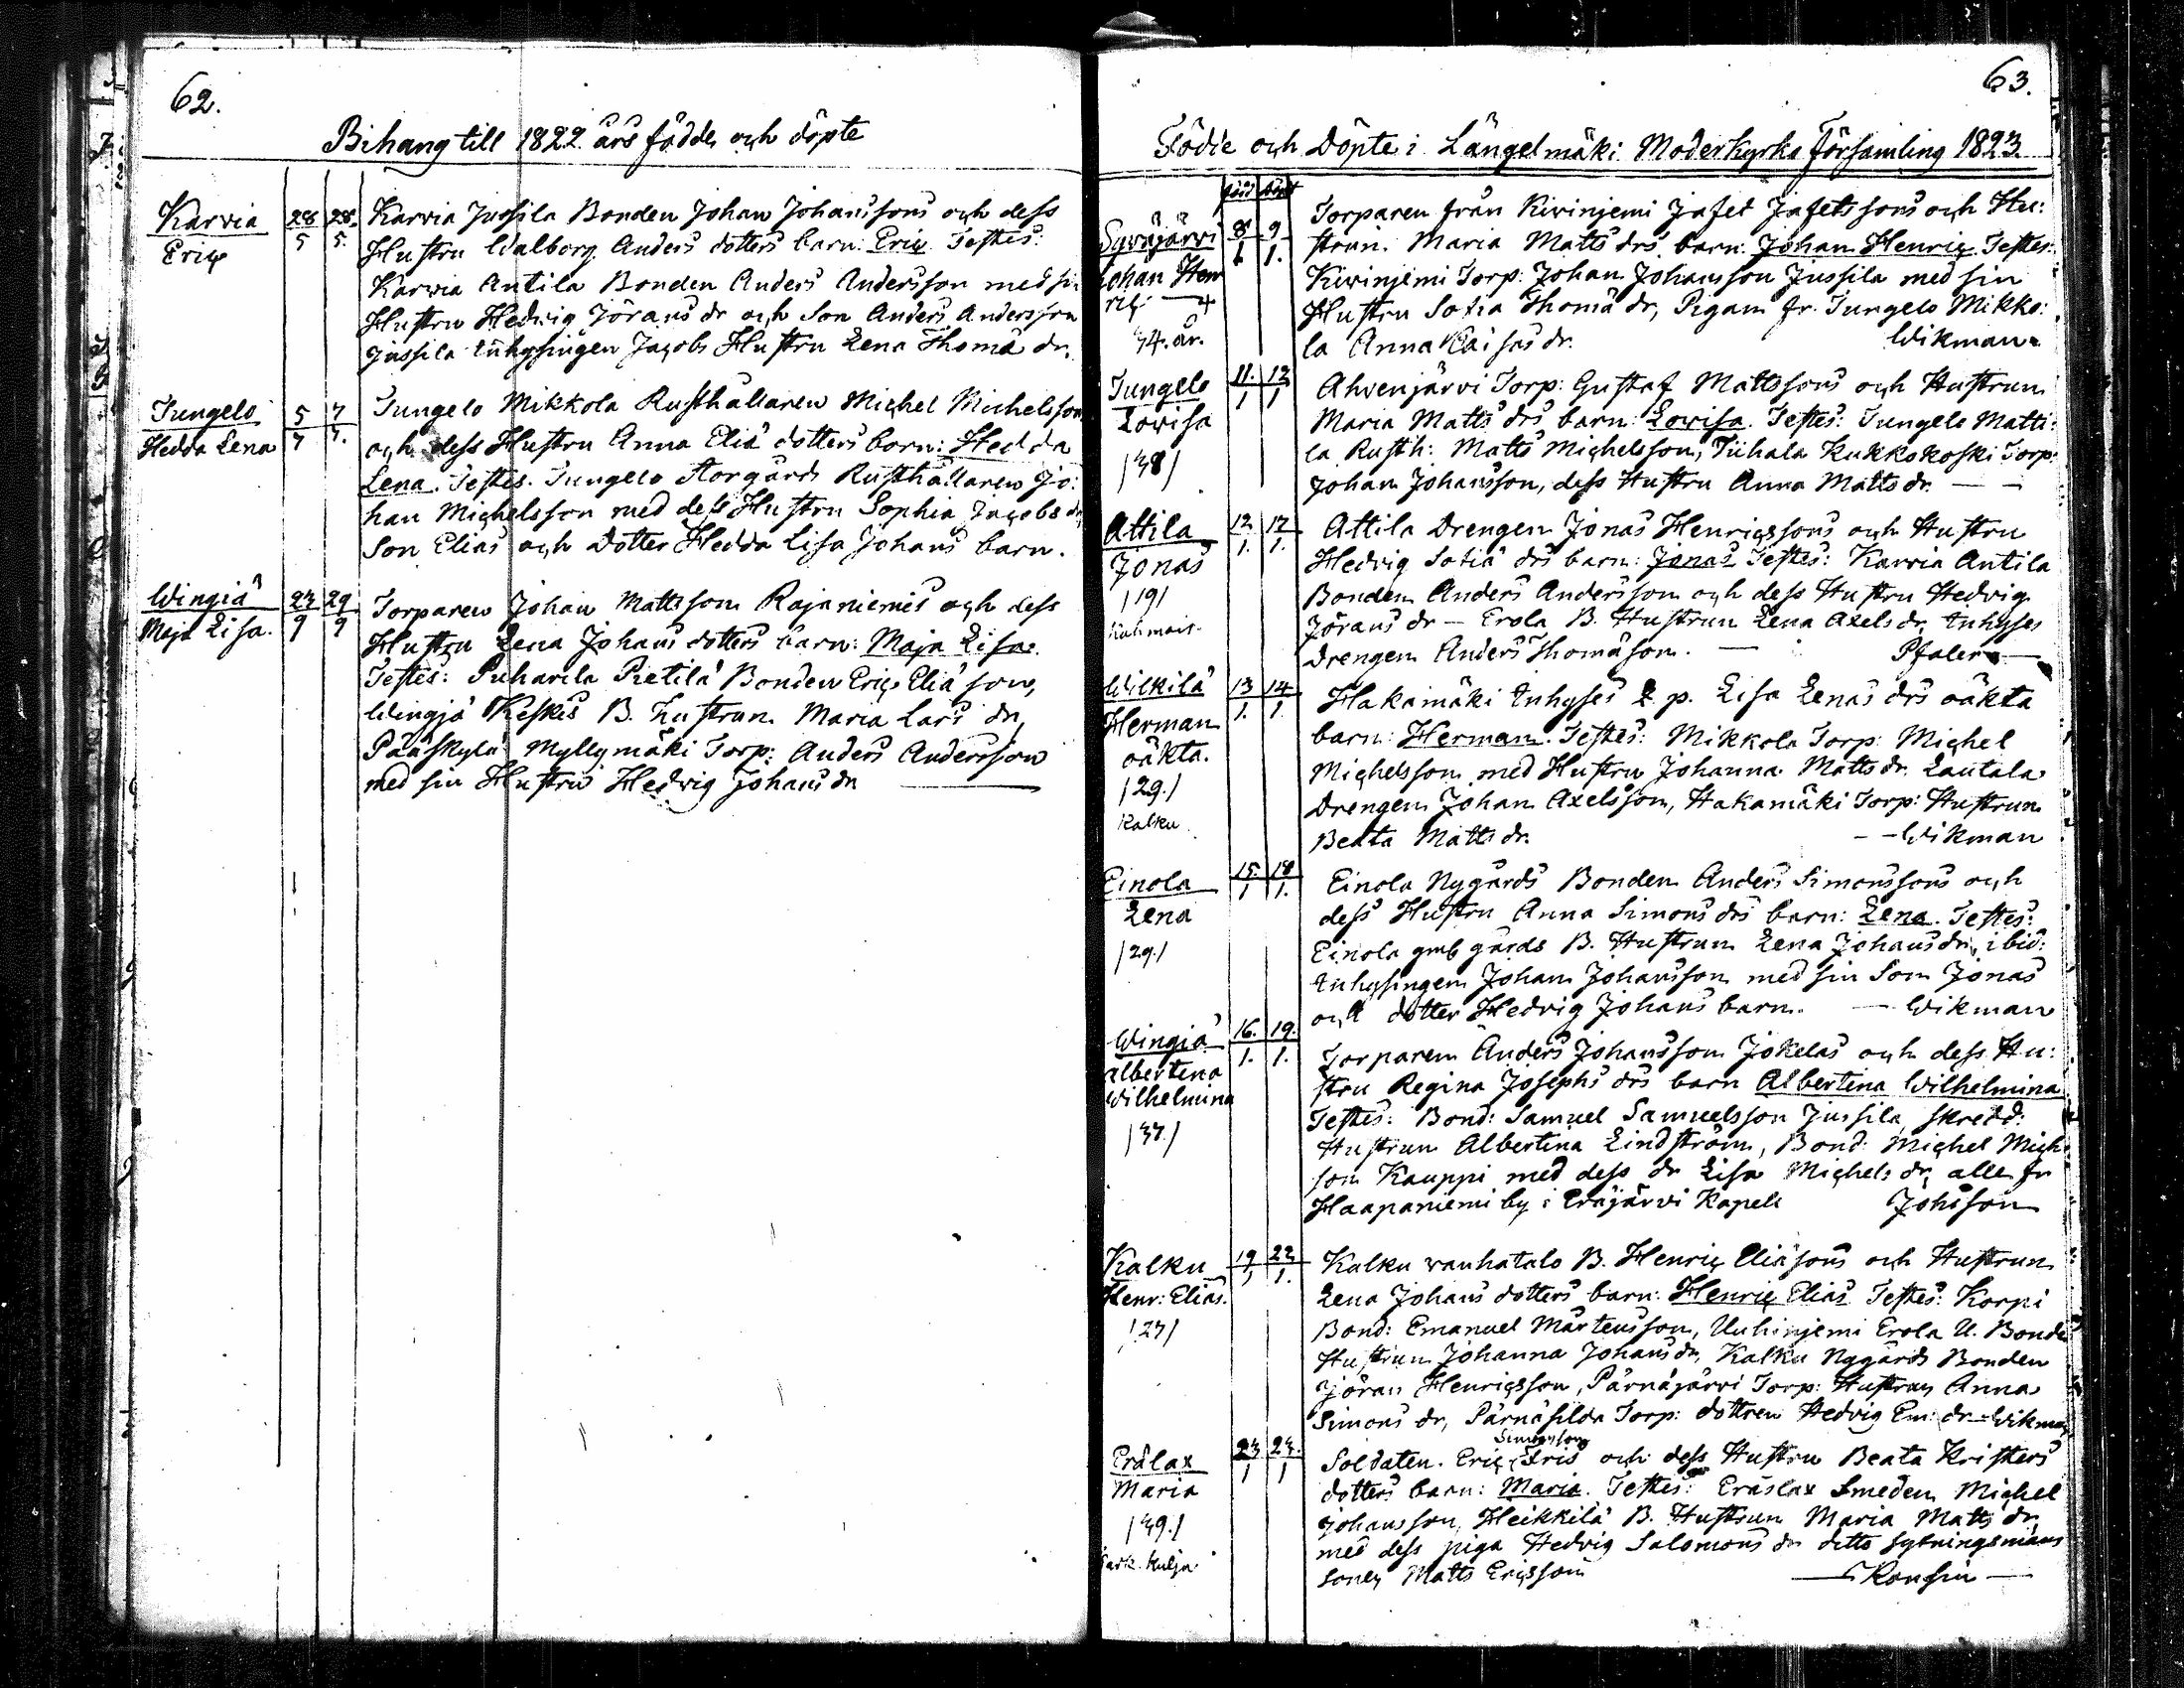 62.
Bihang till 1822 års födde och döpte
Karvia
Eric
28 28.
5 5.
Karvia Jussila Bonden Johan Johanssons och dess
Hustru Walborg Anders dotters barn: Eric Testes:
Karvia Antila Bonden Anders Andersson med sin
Hustru Hedvig Jörans dr och Son Anders Andersson
Jussila inhysingen Jacobs Hustru Lena Thomä dr.
Jungelo
Hedda Lena
5 7
7 7.
Jungelo Mikkola Rusthållaren Michel Michelsson
och dess Hustru Anna Eliä dotters barn: Hedda
Lena. Testes. Jungelo Storgårds Rusthållaren Jo:
han Michelsson med dess Hustru Sophia Jacobs dr,
Son Elias och dotter Hedda Lisa Johans barn.
Wingiä
Maja Lisa.
23 29
9 9
Torparen Johan Mattsson Rajaniemis och dess
Hustru Lena Johans dotters barn: Maja Lisa.
Testes: Puharila Pietilä Bonden Eric Eliä son,
Wingiä Keskis B. hustrun Maria Lars dr,
Pääskylä Myllymäki Torp: Anders Andersson
med sin Hustru Hedvig Johans dr
63.
Födde och Döpte i Längelmäki Moderkyrko Församling 1823.
född döpt
Syväjärvi
Johan Hen
ric
34. år.
8 9
1 1.
Torparen från Kivinjemi Jafet Jafetssons och Hu:
struns Maria Matts drs barn: Johan Henric Testes:
Kivinjemi Torp: Johan Johansson Jussila med sin
Hustru Sofia Thomä dr, Pigan fr. Jungelo Mikko:
la Anna Kaisas dr. Wikman
Jungelo
Lovisa
/38/
11. 12
1 1
Ahvenjärvi Torp: Gustaf Mattssons och Hustrun
Maria Matts drs barn: Lovisa. Testes: Jungelo Matti:
la Rusth: Matts Michelsson, Tiihala Kukkokoski Torp:
Johan Johansson, dess Hustru Anna Matts dr.
Attila
Jonas
/19/
12 12
1. 1.
Attila Drengen Jonas Henricssons och Hustru
Hedvig Sofiä drs barn: Jonas Testes: Karvia Antila
Bonden Anders Andersson och dess Hustru Hedvig
Jörans dr – Erola B. Hustrun Lena Axels dr, inhyses
drengen Anders Thomäson. Pfaler
Wilkilä
Herman
oäkta.
/29./
Kalku
13 14
1. 1.
Hakamäki inhyses q. p. Lisa Lenas drs oäkta
barn: Herman. Testes: Mikkola Torp: Michel
Michelsson med Hustru Johanna Matts dr. Lautala
Drengen Johan Axelsson, Hakamäki Torp: Hustrun
Beata Matts dr. – Wikman
Einola
Lena
/29./
15. 18
1 1.
Einola Nygårds Bonden Anders Simonssons och
dess Hustru Anna Simons drs barn: Lena. Testes:
Einola gml gårds B. Hustrun Lena Johans dr, ibid:
inhysingen Johan Johansson med sin Son Jonas
och dotter Hedvig Johans barn. – Wikman
Wingiä
Albertina
Wilhelmina
/37./
16. 19.
1. 1.
Torparen Anders Johansson Jokelas och dess Hu:
stru Regina Josephs drs barn Albertina Wilhelmina
Testes: Bond: Samuel Samuelsson Jussila, skredd:
Hustrun Albertina Lindström, Bond: Michel Mich
son Kauppi med dess dr Lisa Michels dr, alle fr
Haapaniemi by i Eräjärvi Kapell Johsson
Kalku
Henr: Elias.
/27/
19 22
1 1.
Kalku vanhatalo B. Henric Eliäsons och Hustrun
Lena Johans dotters barn: Henric Elias Testes: Korpi
Bond: Emanuel Mårtensson, Uuhinjemi Erola U. Bonde
Hustrun Johanna Johans dr, Kalku Nygårds Bonden
Jöran Henricsson, Pärnäjärvi Torp: Hustrun Anna
Simons dr, Pärnäsilda Torp: dottren Hedvig Em: dr – Wikman
Eräslax
Maria
/39./
23 23.
1 1
Simonsson
Soldaten Eric Fris och dess Hustru Beata Kristers
dotters barn: Maria. Testes: Eräslax Smeden Michel
Johansson, Heikkilä B. Hustrun Maria Matts dr,
med dess piga Hedvig Salomons dr ditto sytningsmans
Sonen Matts Ericsson – Konsin –